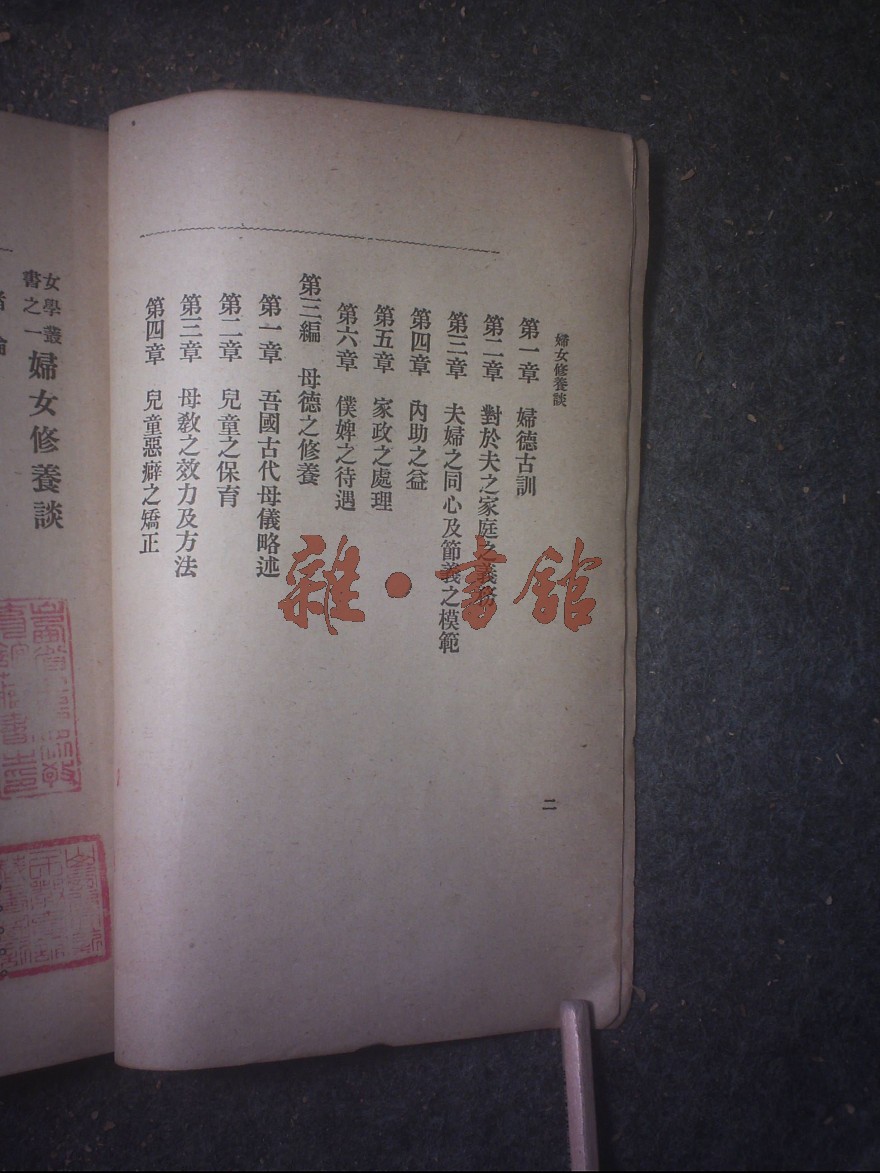 婦女修養談
第一章　婦德古訓
第二章　對於夫之家庭之義務
第三章　夫婦之同心及節義之模範
第四章　內助之益
第五章　家政之處理
第六章　僕婢之待遇
第三編　母德之修養
第一章　吾國古代母儀略述
第二章　兒童之保育
第三章　母教之效力及方法
第四章　兒童惡癖之矯正
二
雜·書館
女學叢書之一　婦女修養談